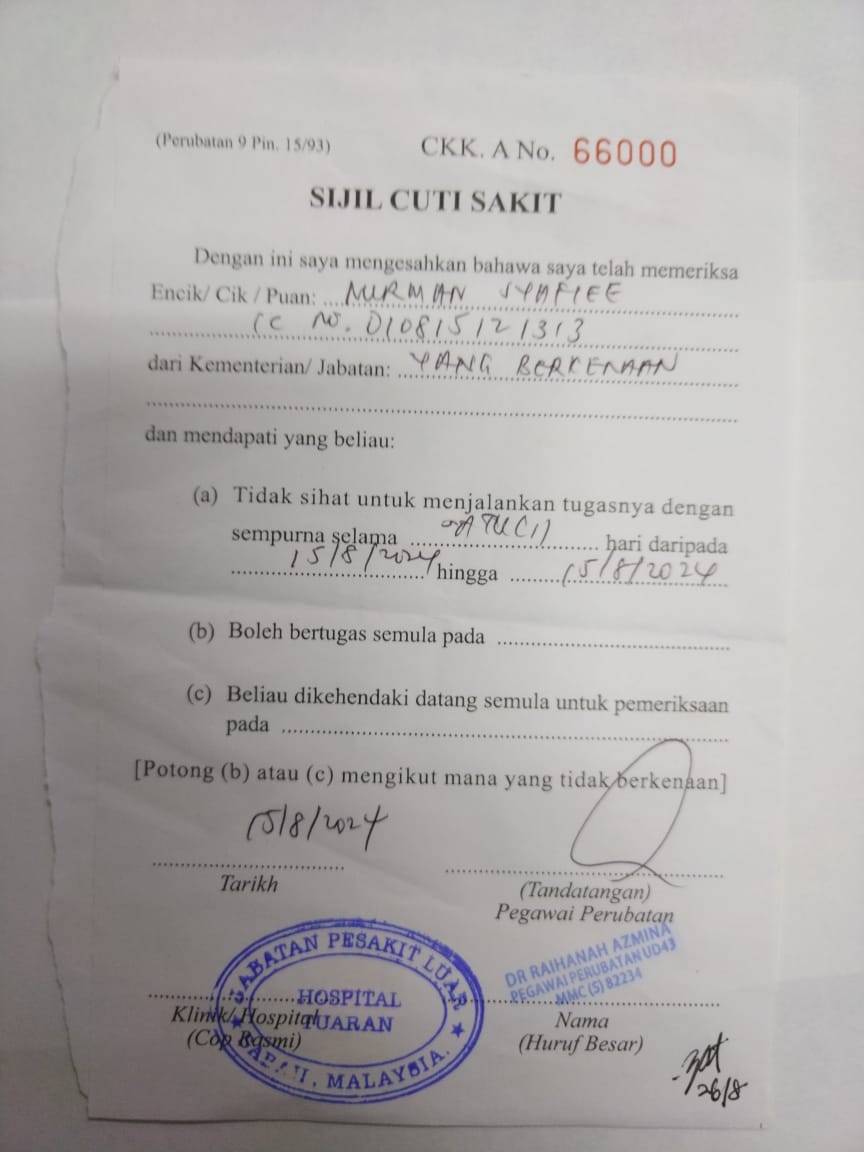 (Perubatan 9 Pin. 15/93)
CKK. A No. 66000
SIJIL CUTI SAKIT
Dengan ini saya mengesahkan bahawa saya telah memeriksa
Encik/ Cik / Puan: NURMAN SYAFIEE
IC NO. 010815121313
dari Kementerian/ Jabatan: YANG BERKENAAN
dan mendapati yang beliau:
(a) Tidak sihat untuk menjalankan tugasnya dengan
sempurna selama SATU(1) hari daripada
15/8/2024 hingga 15/8/2024
(b) Boleh bertugas semula pada
(c) Beliau dikehendaki datang semula untuk pemeriksaan
pada
[Potong (b) atau (c) mengikut mana yang tidak berkenaan]
15/8/2024
Tarikh
(Tandatangan)
Pegawai Perubatan
JABATAN PESAKIT LUAR
HOSPITAL
TUARAN
SABAH, MALAYSIA.
Klinik/ Hospital
(Cop Rasmi)
DR RAIHANAH AZMINA
PEGAWAI PERUBATAN UD43
MMC (S) 82234
Nama
(Huruf Besar)
26/8